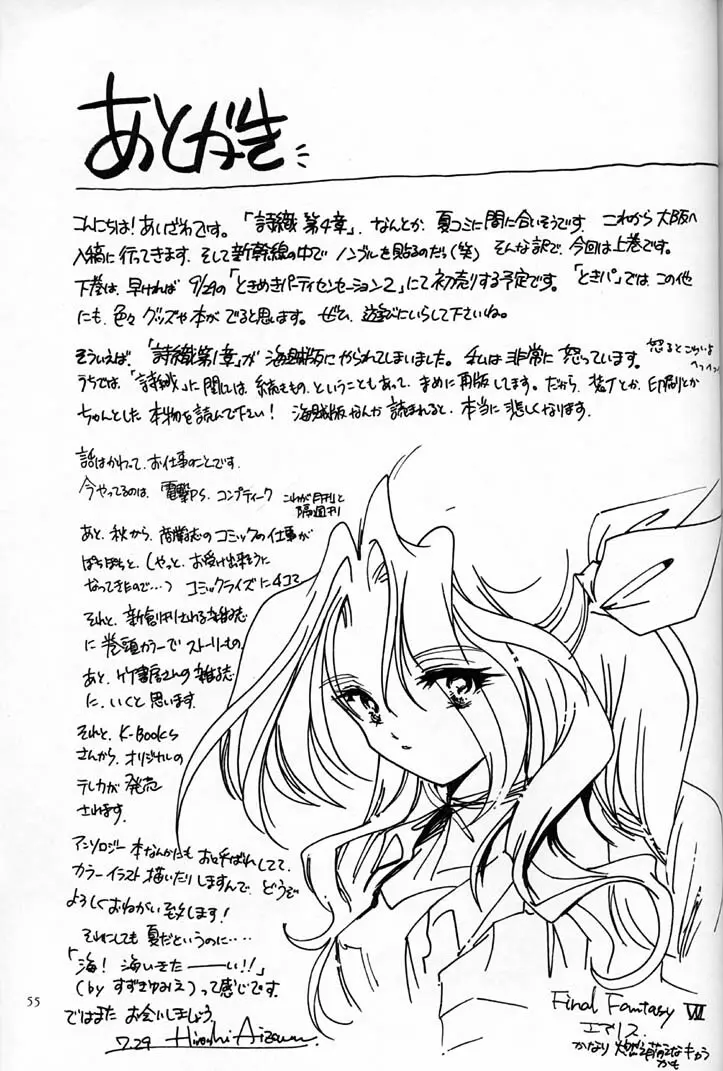 あとがき
こんにちは!あいざわです。「詩織 第4章」、なんとか、夏コミに間に合いそうです。これから大阪へ
入稿に行ってきます。そして新幹線の中でノンブルを貼るのだら(笑) そんな訳で、今回は上巻です。
下巻は、早ければ 9/29の「ときめきパーティセンセーション2」にて初売りする予定です。「ときパ」では、この他
にも、色々グッズや本がでると思います。ぜひ、遊びにいらして下さいね。
そういえば、「詩織第1章」が海賊版にやられてしまいました。私は非常に怒っています。
怒るとこわいよ
へっへっへっ
うちでは、「詩織」に関しては、続きもの、ということもあって、まめに再版します。だから、装丁とか、印刷とか
ちゃんとした本物を読んで下さい! 海賊版なんか読まれると、本当に悲しくなります。
話はかわって、お仕事のことです。
今やってるのは、電撃PS、コンプティーク
これが月刊と
隔週刊
あと、秋から、商業誌のコミックの仕事が
ぽちぽちと、(やっと、お受け出来そうに
なってきたので…) コミックライズに4コマ
それと、新創刊される雑誌
に巻頭カラーでストーリーもの。
あと、竹書房さんの雑誌
に、いくと思います。
それと、K-Books
さんから、オリジナルの
テレカが発売
されます。
アンソロジー本なんかにもお呼ばれしてて、
カラーイラスト描いたりしますんで、どうぞ
よろしくおねがい致します!
それにしても夏だというのに‥‥
「海!海いきたーーい!!」
(by すずきゆみえ)って感じです。
ではまたお会いしましょう。
7.29 Hiroshi Aizawa.
Final Fantasy VII
エアリス.
かなり 萌えなキャラ
かも
55